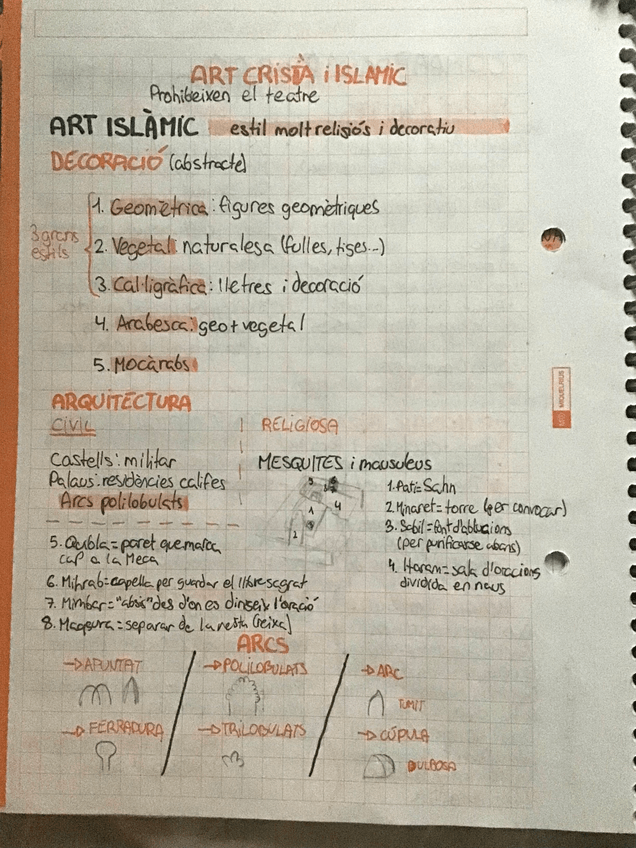 ART CRISTÀ i ISLAMIC
Prohibeixen el teatre
ART ISLÀMIC estil molt religiós i decoratiu
DECORACIÓ (abstracte)
3 grans estils
1. Geomètrica: figures geomètriques
2. Vegetal naturalesa (fulles, tiges...)
3. Cal·ligràfica: lletres i decoració
4. Arabesca: geo + vegetal
5. Mocàrabs
ARQUITECTURA
CIVIL
Castells: militar
Palaus: residències califes
Arcs polilobulats
RELIGIOSA
MESQUITES i mausuleus
1. Pati = Sahn
2. Minaret = torre (per convocar)
3. Sabil = font d'ablucions
(per purificarse abans)
4. Haram = sala d'oracions
dividida en naus
5. Quibla = paret que marca
cap a la Meca
6. Mihrab = capella per guardar el llibre sagrat
7. Mimbar = "absis" des d'on es dirigeix l'oració
8. Maqsura = separar de la resta (reixa)
ARCS
→ APUNTAT
→ POLILOBULATS
→ ARC
TUMIT
→ FERRADURA
→ TRILOBULATS
→ CÚPULA
BULBOSA
MIQUELRIUS